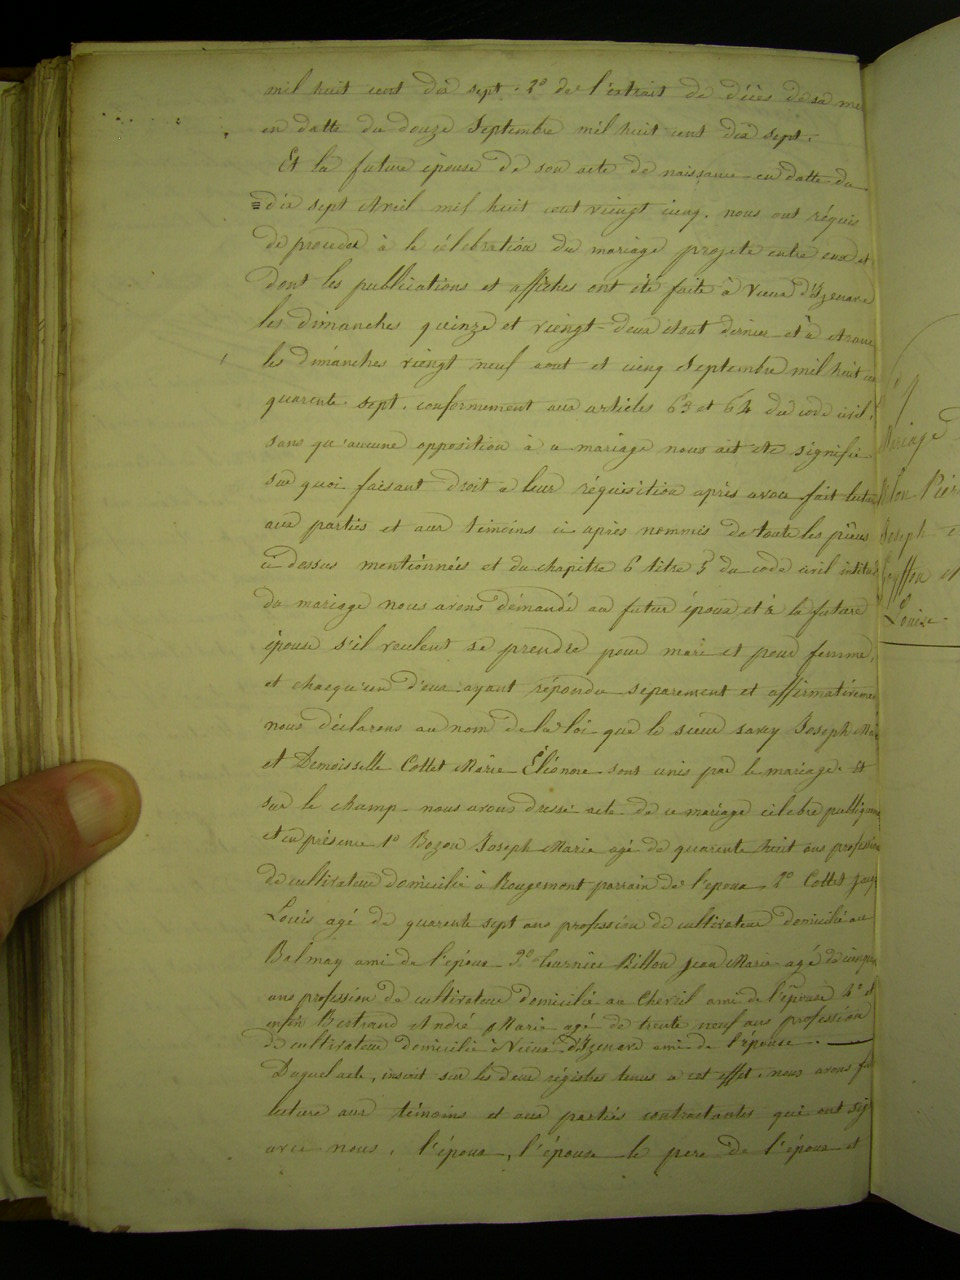 mil huit cent dix sept. 2° de l'extrait de décès de sa me
en datte du douze Septembre mil huit cent dix sept.
Et la future épouse de son acte de naissance en datte du
dix sept Avril mil huit cent vieingt cieng. nous ont réquis
de proceder à la célébration du mariage projeté entre eux et
dont les publications et affiches ont été faite à Vieux d'Izenave
les dimanches quinze et vieingt-deux Aout dernier et à Aranc
les dimanches vieingt neuf aout et cieng Septembre mil huit ce
quarente-sept. conformement aux articles 63 et 64 du code civil,
sans qu'aucune opposition à ce mariage nous ait été signifié
sur quoi faisant droit a leur réquisition après avoir fait lectur
aux partiés et aux témoins ci après nommés de toute les pièces
ci dessus mentionnées et du chapitre 6 titre 5 du code civil intitul
du mariage nous avons démandé au futur époux et à la future
épouse s'il veulent se prendre pour mari et pour femme,
et chaequ'un d'eux ayant répondu separement et affirmativeme
nous déclarons au nom de la loi que le sieur savey Joseph Mari
et Demoisselle Cottet Marie Eléonore sont unis par le mariage. Et
sur le champ nous avons dressé acte de ce mariage célebré publiqueme
et en présence 1° Bozon Joseph Marie agé de quarente huit ans profession
de cultivateur domicilié à Rougemont parrain de l'époux 2° Cottet
Louis agé de quarente sept ans profession de cultivateur domicilié au
Balmay ami de l'époux 3° Billon Jean Marie agé de cinquan
ans profession de cultivateur domicilié au Chevril ami de l'épouse 4° et
enfin Bertrand André Marie agé de trente neuf ans profession
de cultivateur domicilié à Vieux d'Izenave ami de l'épouse.
Duquel acte, inscrit sur les deux régistres tenus a cet effet, nous avons fai
lecture aux témoins et aux partiés contractantes qui ont sig
avec nous, l'époux, l'épouse le père de l'époux et
Mariage
Joseph
Louise